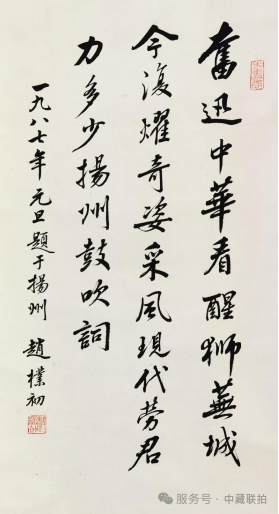 奮迅中華看醒獅蕪城
今復耀奇姿采風現代勞君
力多少揚州鼓吹詞
一九八七年元旦題于揚州 趙樸初
服务号·中藏联拍